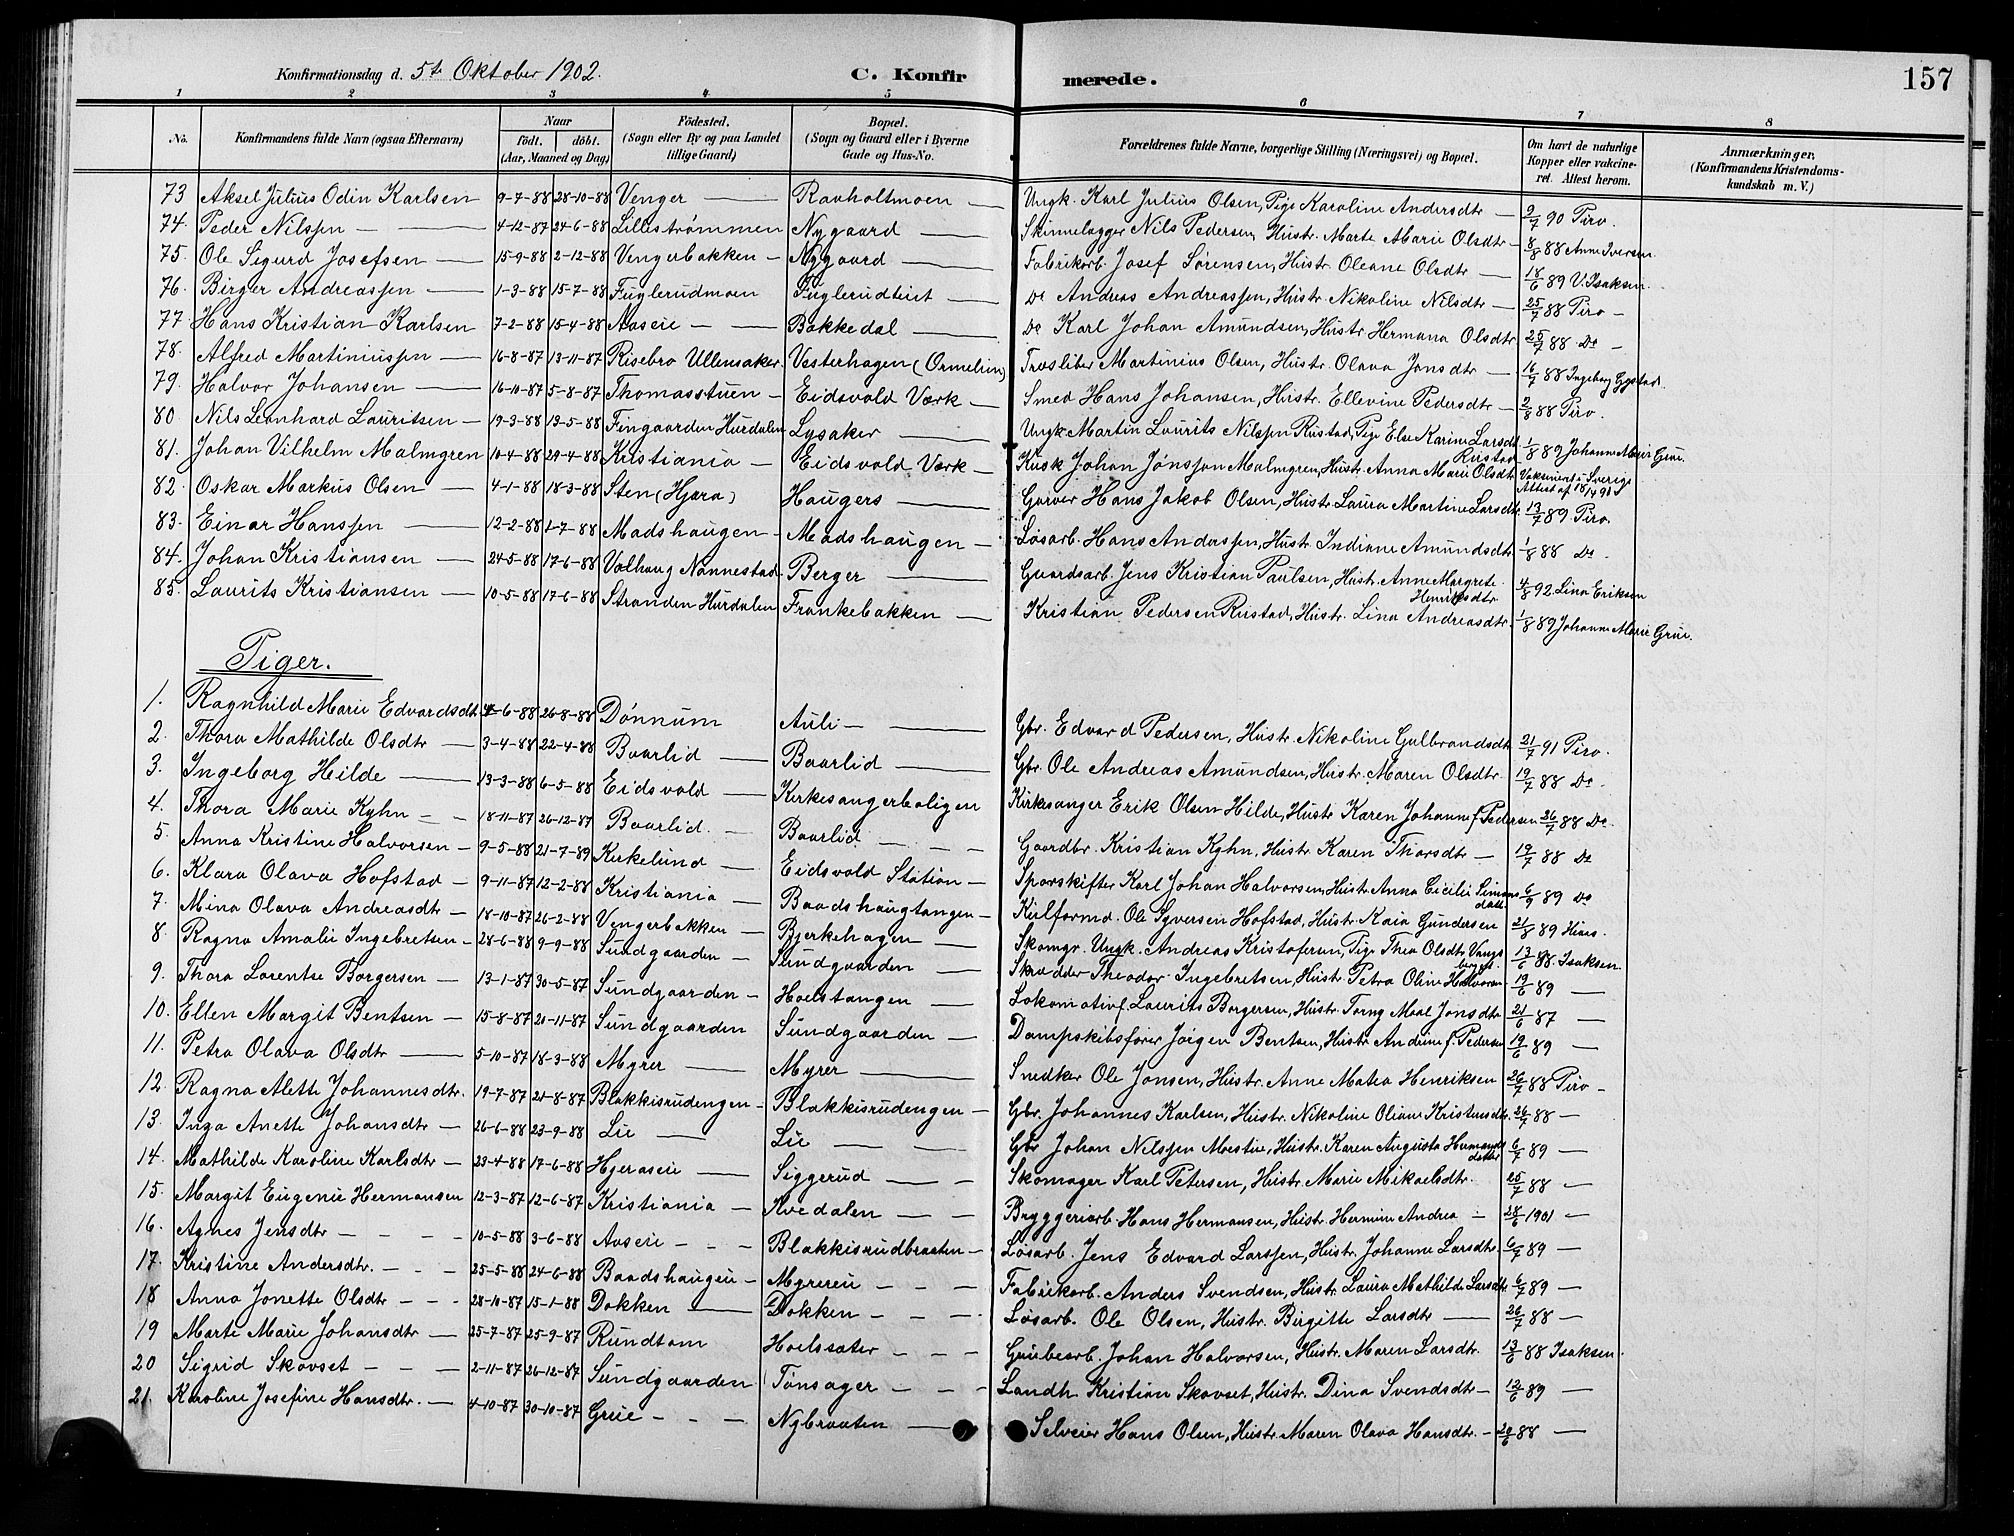 Konfirmationsdag d. 5te Oktober 1902. C. Konfirmerede. 157
1 2 3 4 5 6 7 8
No. Konfirmandens fulde Navn (ogsaa Efternavn) Naar födt. döbt. (Aar, Maaned og Dag) Födested. (Sogn eller By og paa Landet tillige Gaard) Bopæl. (Sogn og Gaard eller i Byerne Gade og Hus-No. Forældrenes fulde Navne, borgerlige Stilling (Næringsvei) og Bopæl. Om havt de naturlige Kopper eller vakcineret. Attest herom. Anmærkninger, (Konfirmandens Kristendomskundskab m. V.)
73 Aksel Julius Odin Karlsen 9-7-88 28-10-88 Venger — Ravholtmoen — Ungk. Karl Julius Olsen, Pige Karoline Andersdtr — 9/7 90 Piro.
74. Peder Nilssen — 4-12-87 24-6-88 Lillestrømmen Nygaard — Skinnelægger Nils Pedersen, Hustr. Marte Marie Olsdtr — 8/8 88 Anne Iversen
75. Ole Sigurd Josefsen — 15-9-88 2-12-88 Vengerbakken — Nygaard — Fabrikarb. Josef Sørensen, Hustr. Oleane Olsdtr — 18/6 89 V. Isaksen.
76. Birger Andreassen — 1-3-88 15-7-88 Fuglerudmoen Fuglerudteiet — Do Andreas Andreassen, Hustr. Nikoline Nilsdtr — 25/7 88 Piro —
77. Hans Kristian Karlsen 7-2-88 15-4-88 Aaseie — Bakkedal — Do Karl Johan Amundsen, Hustr Hermana Olsdtr 25/7 88 Do —
78. Alfred Martiniussen — 16-8-87 13-11-87 Risebro Ullensaker Vesterhagen (Ormelien) Træsliber Martinius Olsen, Hustr. Olava Jonsdtr — 16/7 88 Ingeborg Gystad.
79. Halvor Johansen — 16-10-87 5-8-87 Thomasstuen — Eidsvold Værk — Smed Hans Johansen, Hustr. Ellevine Pedersdtr — 2/8 88 Piro.
80. Nils Leonhard Lauritsen — 19-3-88 19-5-88 Fingaarden Hurdalen Lysaker — Ungk. Martin Laurits Nilssen Rustad, Pige Else Karine Larsdt. Rustad 1/8 89 Johanne Marie Grue.
81. Johan Vilhelm Malmgren 10-4-88 29-4-88 Kristiania — Eidsvold Værk — Kusk Johan Jónsson Malmgren, Hustr. Anna Marie Olsdtr Vaksineret i Sverige Attest af 18/4 98
82. Oskar Markus Olsen — 4-1-88 18-3-88 Sten (Hjæra) Haugers — Garver Hans Jakob Olsen, Hustr Laura Martine Larsdtr. 13/7 89 Piro.
83. Einar Hanssen — 12-2-88 1-7-88 Madshaugen — Madshaugen — Løsarb. Hans Anderssen, Hustr. Indiane Amundsdtr 1/8 88 Do.
84. Johan Kristiansen — 24-5-88 17-6-88 Volhaug Nannestad Berger — Gaardsarb. Jens Kristian Paulsen, Hustr. Anne Margrete Henriksdtr 4/8 92. Lina Eriksen
85. Laurits Kristiansen — 10-5-88 17-6-88 Stranden Hurdalen Frankebakken — Kristian Pedersen Rustad, Hustr. Lina Andreasdtr. 1/8 89 Johanne Marie Grue.
Piger.
1. Ragnhild Marie Edvardsdtr 4-6-88 26-8-88 Dønnum Auli — Gbr. Edvard Pedersen, Hustr. Nikoline Gulbrandsdtr 21/7 91 Piro.
2. Thora Mathilde Olsdtr — 3-4-88 22-4-88 Baarlid — Baarlid — Gbr. Ole Andreas Amundsen, Hustr. Maren Olsdtr. 19/7 88 Do.
3. Ingeborg Hilde — 13-3-88 6-5-88 Eidsvold — Kirkesangerboligen Kirkesanger Erik Olsen Hilde, Hustr Karen Johanne f. Pedersen 26/7 88 Do.
4. Thora Marie Kyhn — 18-11-87 26-12-87 Baarlid. — Baarlid — Gaardbr. Kristian Kyhn, Hustr. Karen Thorsdtr — 19/7 88 Do
5. Anna Kristine Halvorsen — 9-5-88 21-7-89 Kirkelund — Eidsvold Station — Sporskifter Karl Johan Halvorsen, Hustr. Anna Cicilie Simonsdatt. 6/9 89 Do
6. Klara Olava Hofstad — 9-11-87 12-2-88 Kristiania — Baadshaugtangen — Kulformd. Ole Syversen Hofstad, Hustr. Kaia Gundersen 21/8 89
7. Mina Olava Andreasdtr — 18-10-87 26-2-88 Vengerbakken — Bjerkehagen — Skomgr. Ungk. Andreas Kristofersen, Pige Thea Olsdtr. 13/6 88. Isaksen.
8. Ragna Amalie Ingebretsen — 28-6-88 9-9-88 Sundgaarden — Sundgaarden — Skrædder Theodor Ingebretsen, Hustr Petra Oline Halvorsen 19/6 89 —
9. Thora Lorentse Borgersen — 13-1-87 30-5-87 Sundgaarden — Hoelstangen — Lokomotivf. Laurits Borgersen, Hustr. Jonsdtr 21/6 87 —
10. Ellen Margit Bentsen — 15-8-87 20-11-87 Sundgaarden Sundgaarden — Dampskibsfører Jørgen Bentsen, Hustr. Andrine f. Pedersen 19/6 89 —
11. Petra Olava Olsdtr — 5-10-87 18-3-88 Myrer — Myrer — Snedker Ole Jonsen, Hustr. Anne Matea Henriksen 26/7 88 Piro —
12. Ragna Alette Johannesdtr. 19-7-87 21-8-87 Blakkisrudengen — Blakkisrudengen — Gbr. Johannes Karlsen, Hustr. Nikoline Oliane Kristensdtr. 26/7 88 —
13. Inga Anette Johansdtr — 26-6-88 23-9-88 Lie — Lie — Gbr Johan Nilssen Moestue, Hustr. Karen Augusta Hermansdatter 6/7 89 —
14. Mathilde Karoline Karlsdtr — 23-4-88 17-6-88 Hjeraseie — Siggerud — Skomager Karl Petersen, Hustr. Marie Mikaelsdtr. 25/7 88 —
15. Margit Eugenie Hermansen 12-3-87 12-6-87 Kristiania — Kvedalen — Bryggeriarb. Hans Hermansen, Hustr. Hermine Andrea — 28/6 1901 —
16. Agnes Jensdtr — 10-5-88 3-6-88 Aaseie — Blakkisrudbraaten — Løsarb. Jens Edvard Larssen, Hustr. Johanne Larsdtr 6/7 89 —
17. Kristine Andersdtr. — 25-5-88 24-6-88 Baadshaugen — Myrereie — Fabrikarb. Anders Svendsen, Hustr. Laura Mathilde Larsdtr. 6/7 89 —
18 Anna Jonette Olsdtr — 28-10-87 15-1-88 Dokken — Dokken — Løsarb. Ole Olsen, Hustr. Birgitte Larsdtr — 26/7 88 —
19 Marte Marie Johansdtr — 25-7-87 25-9-87 Rundtom Hoelssæter — Grubearb. Johan Halvorsen, Hustr. Maren Larsdtr. 13/6 88 Isaksen.
20 Sigrid Skovset — 2-11-87 26-12-87 Sundgaarden Tønsager — Landh. Kristian Skovset, Hustr. Dina Svendsdtr — 12/6 89 —
21. Karoline Josefine Hansdtr. — 4-10-87 30-10-87 Grue — Nybraaten — Selveier Hans Olsen, Hustr. Maren Olava Hansdtr. — 20/6 88 —